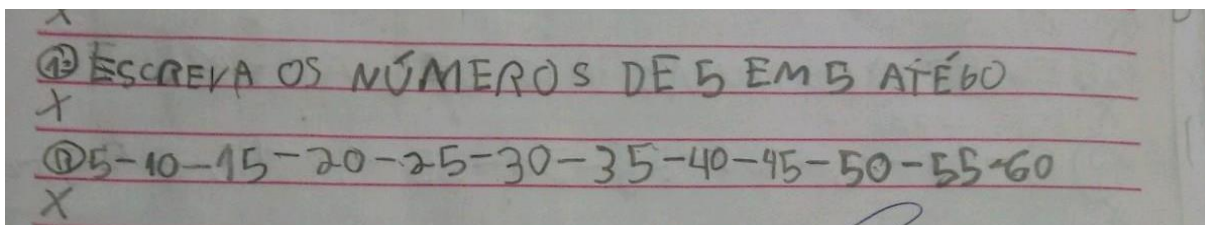 X
1ª ESCREVA OS NÚMEROS DE 5 EM 5 ATÉ 60
X
R 5-10-15-20-25-30-35-40-45-50-55-60
X